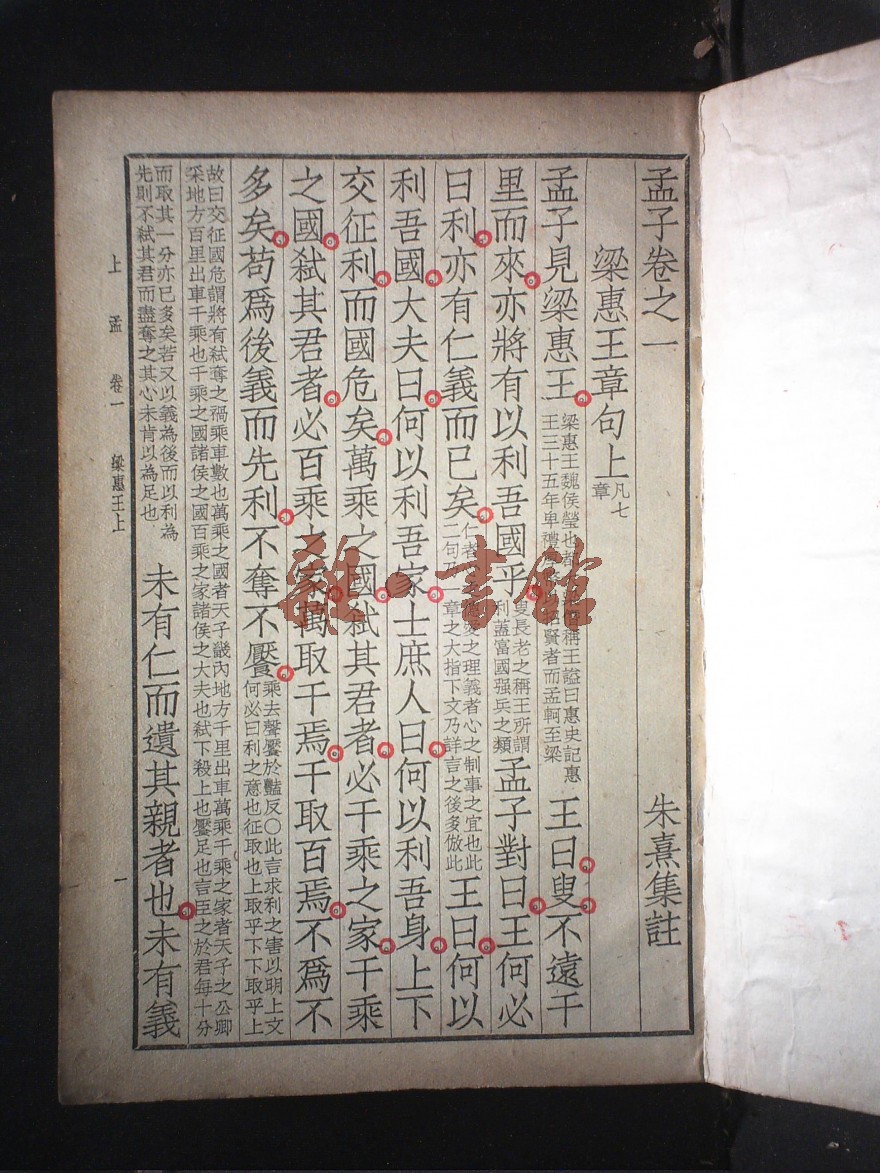 孟子卷之一 朱熹集註
梁惠王章句上
凡七
章
孟子見梁惠王
梁惠王魏侯罃也都 稱王謚曰惠史記惠
王三十五年卑禮厚 招賢者而孟軻至梁
王曰叟不遠千
里而來亦將有以利吾國乎
叟長老之稱王所謂
利蓋富國强兵之類
孟子對曰王何必
曰利亦有仁義而已矣
仁者心之 愛之理義者心之制事之宜也此
二句乃一章之大指下文乃詳言之後多倣此
王曰何以
利吾國大夫曰何以利吾家士庶人曰何以利吾身上下
交征利而國危矣萬乘之國弒其君者必千乘之家千乘
之國弒其君者必百乘之家萬取千焉千取百焉不爲不
多矣苟爲後義而先利不奪不饜
乘去聲饜於豔反○此言求利之害以明上文
何必曰利之意也征取也上取乎下下取乎上
故曰交征國危謂將有弒奪之禍乘車數也萬乘之國者天子畿內地方千里出車萬乘千乘之家者天子之公卿
采地方百里出車千乘也千乘之國諸侯之國百乘之家諸侯之大夫也弒下殺上也饜足也言臣之於君每十分
而取其一分亦已多矣若又以義為後而以利為
先則不弒其君而盡奪之其心未肯以為足也
未有仁而遺其親者也未有義
上孟 卷一 梁惠王上 一
雜·書館